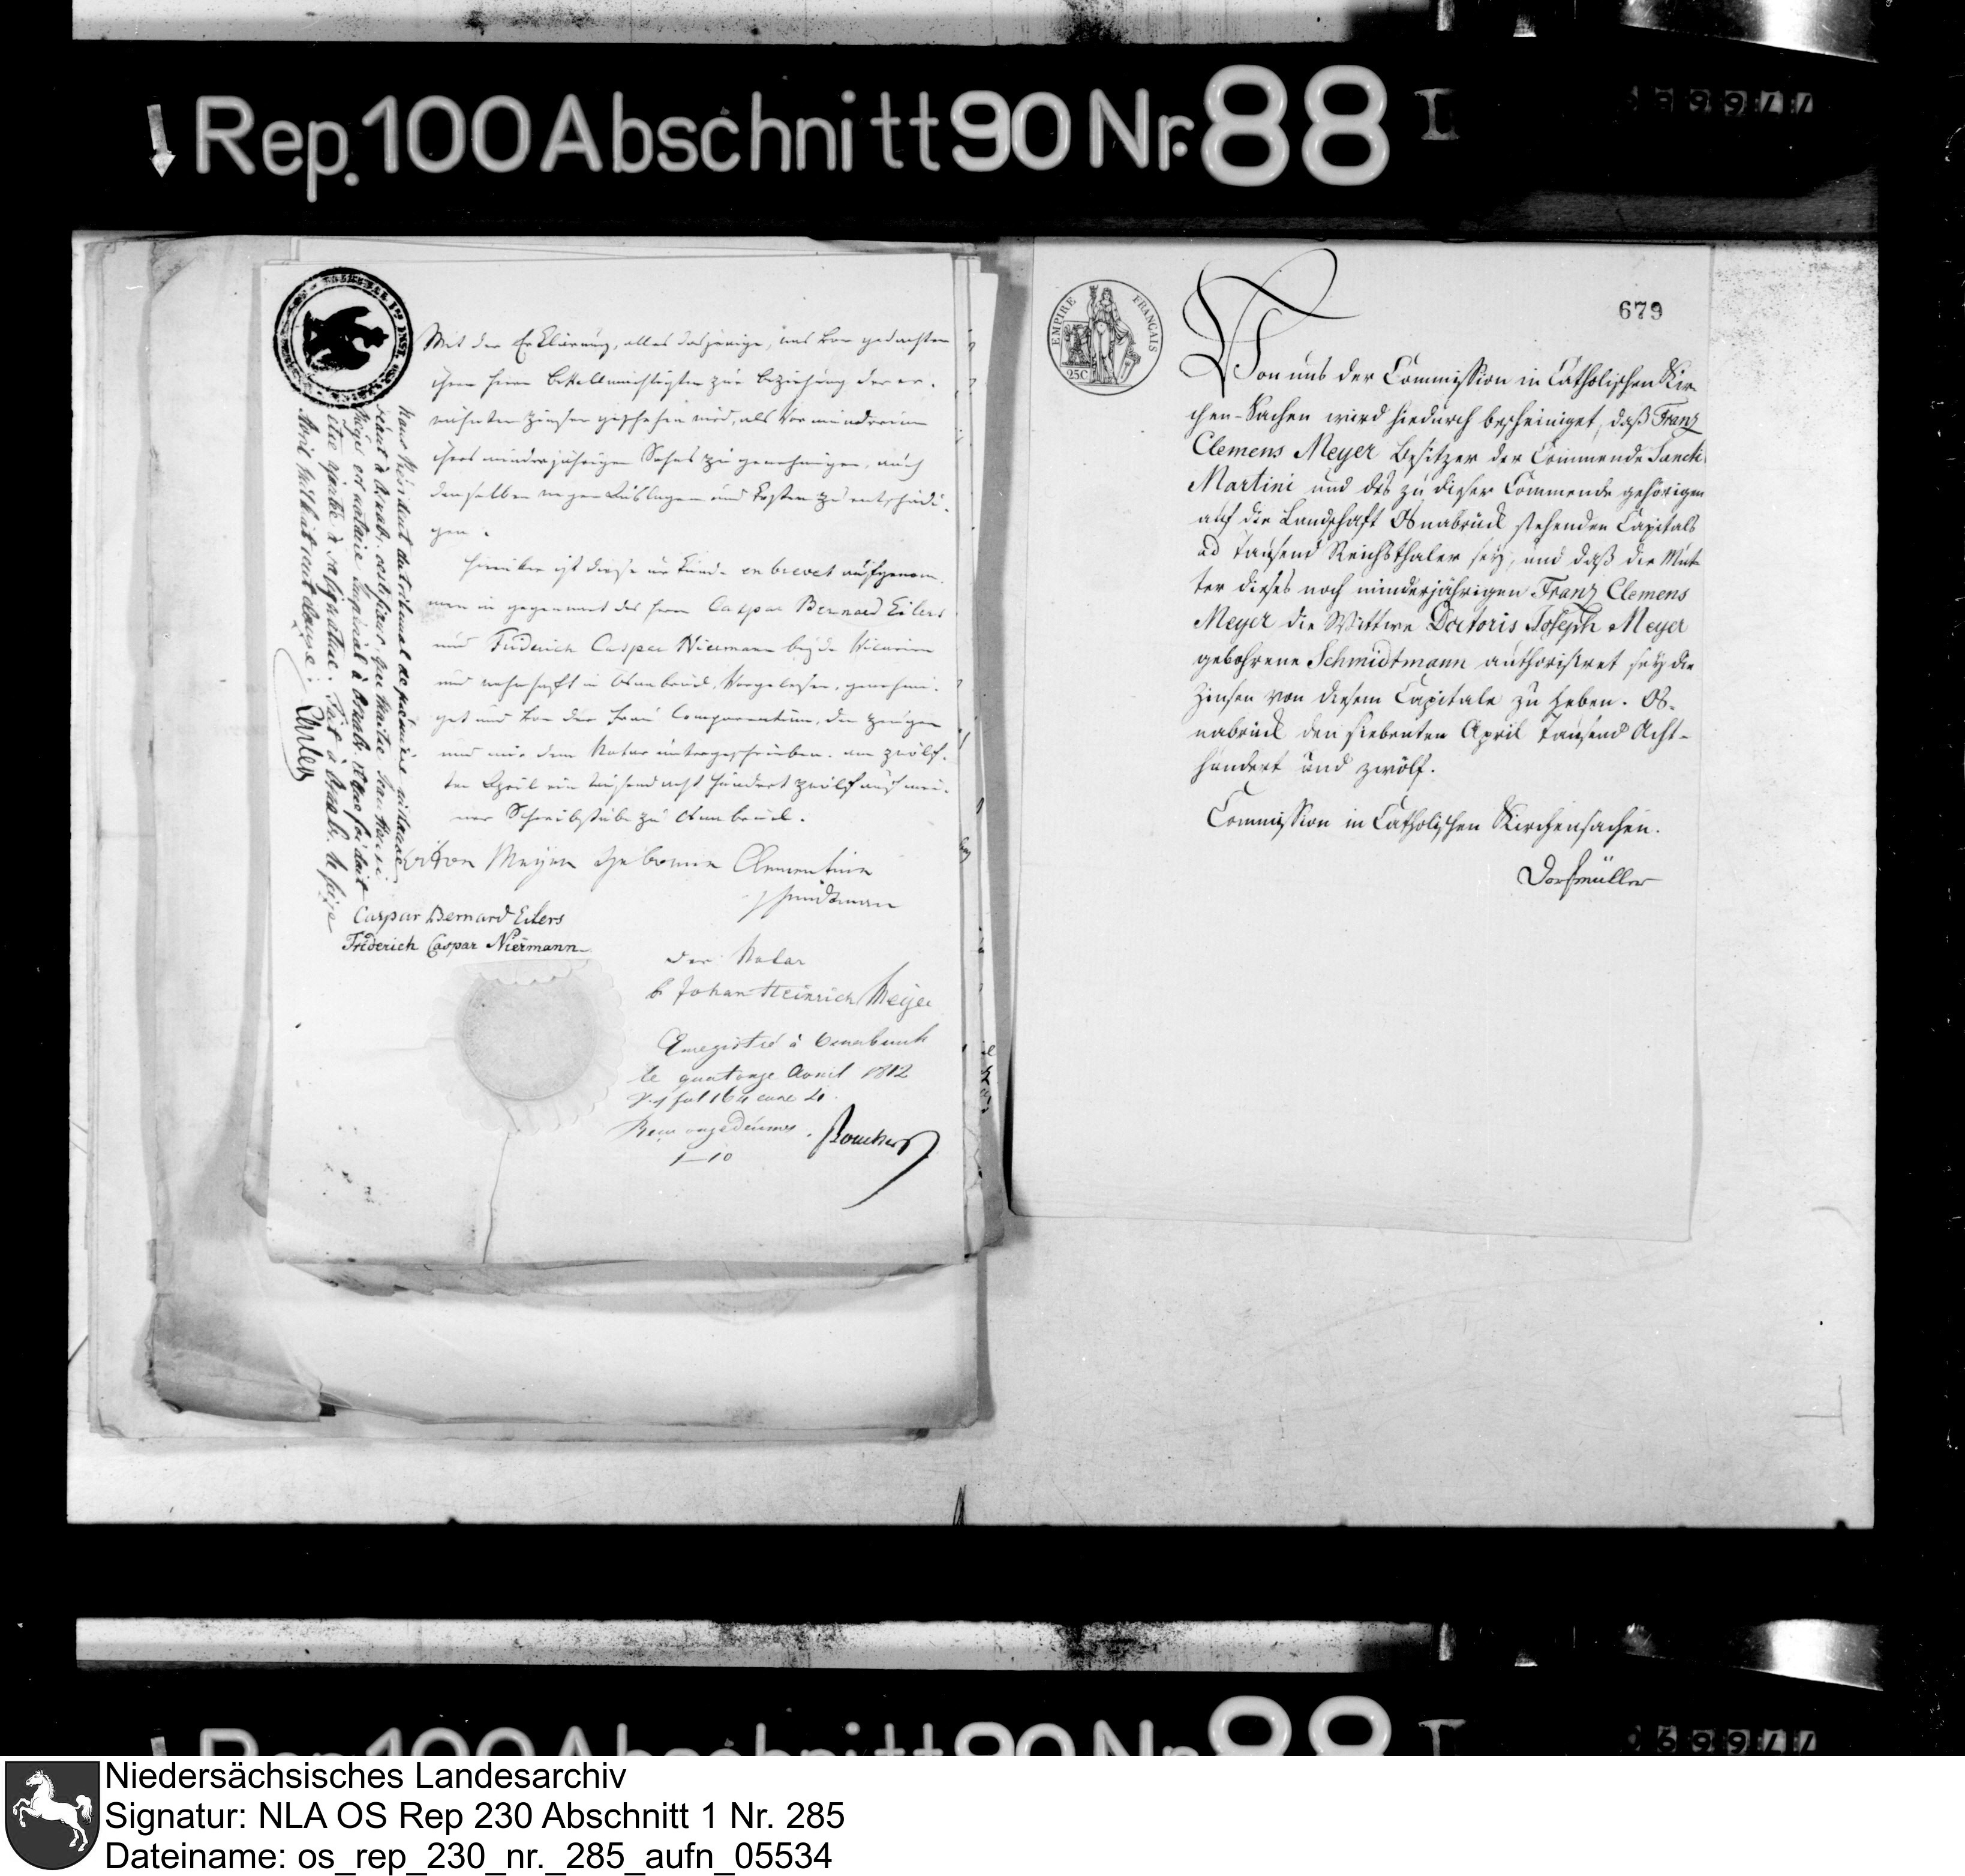 Rep. 100 Abschnitt 90 Nr. 88 I
Mit der Erklärung, alles dasjenige, was von gedachten
ihren Herrn Bevollmächtigten zur Beziehung der er-
wähnten Zinsen geschehen wird, als Vormünderinn
ihres minderjährigen Sohns zu genehmigen, auch
denselben wegen Auslagen und Kosten zu entschädi-
gen.
Hierüber ist diese Urkunde en brevet aufgenom-
men in gegenwart des Herrn Caspar Bernard Eilers
und Friderich Caspar Niermann beyde Vicarien
und wohnhaft in Osnabrück, Vorgelesen, genehmi-
get und von der Frau Comparentinn, den Zeugen
und mir dem Notar unterzeschrieben. am zwölf-
ten April ein tausend acht hundert zwölf auf mei-
ner Schreibstube zu Osnabrück.
Meyer Geborne Clementine
Schmidtman
Caspar Bernard Eilers
Friderich Caspar Niermann
Der Notar
Johan Heinrich Meyer
Enregistré à Osnabruck
le quatorze Avril 1812
Reçu
1-10
Nous Président du tribunal de première instance
séant à Osnab. certifions que Maître Jean Henri
Meyer est notaire impérial à Osnab. et que foi doit
être ajoutée à sa signature. Fait à Osnab. le seize
Avril mil huit cent douze.
EMPIRE FRANÇAIS
25C
679
Von uns der Commission in Catholischen Kir-
chen-Sachen wird hiedurch bescheiniget, daß Franz
Clemens Meyer Besitzer der Commende Sancti
Martini und des zu dieser Commende gehörigen
auf die Landschaft Osnabrück stehenden Capitals
ad Tausend Reichsthaler sey, und daß die Mut-
ter dieses noch minderjährigen Franz Clemens
Meyer die Wittwe Doctoris Joseph Meyer
gebohrene Schmidtmann authorisiret sey die
Zinsen von diesem Capitale zu heben. Os-
nabrück den siebenten April Tausend Acht-
hundert und zwölf.
Commission in Catholischen Kirchensachen.
Dorfmüller
Rep. 100 Abschnitt 90 Nr. 88 I
Niedersächsisches Landesarchiv
Signatur: NLA OS Rep 230 Abschnitt 1 Nr. 285
Dateiname: os_rep_230_nr._285_aufn_05534